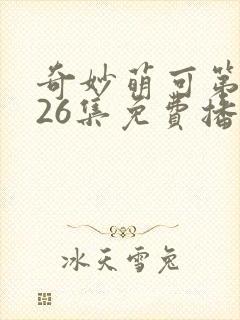 奇妙萌可第
26集免費播
冰天雪兔